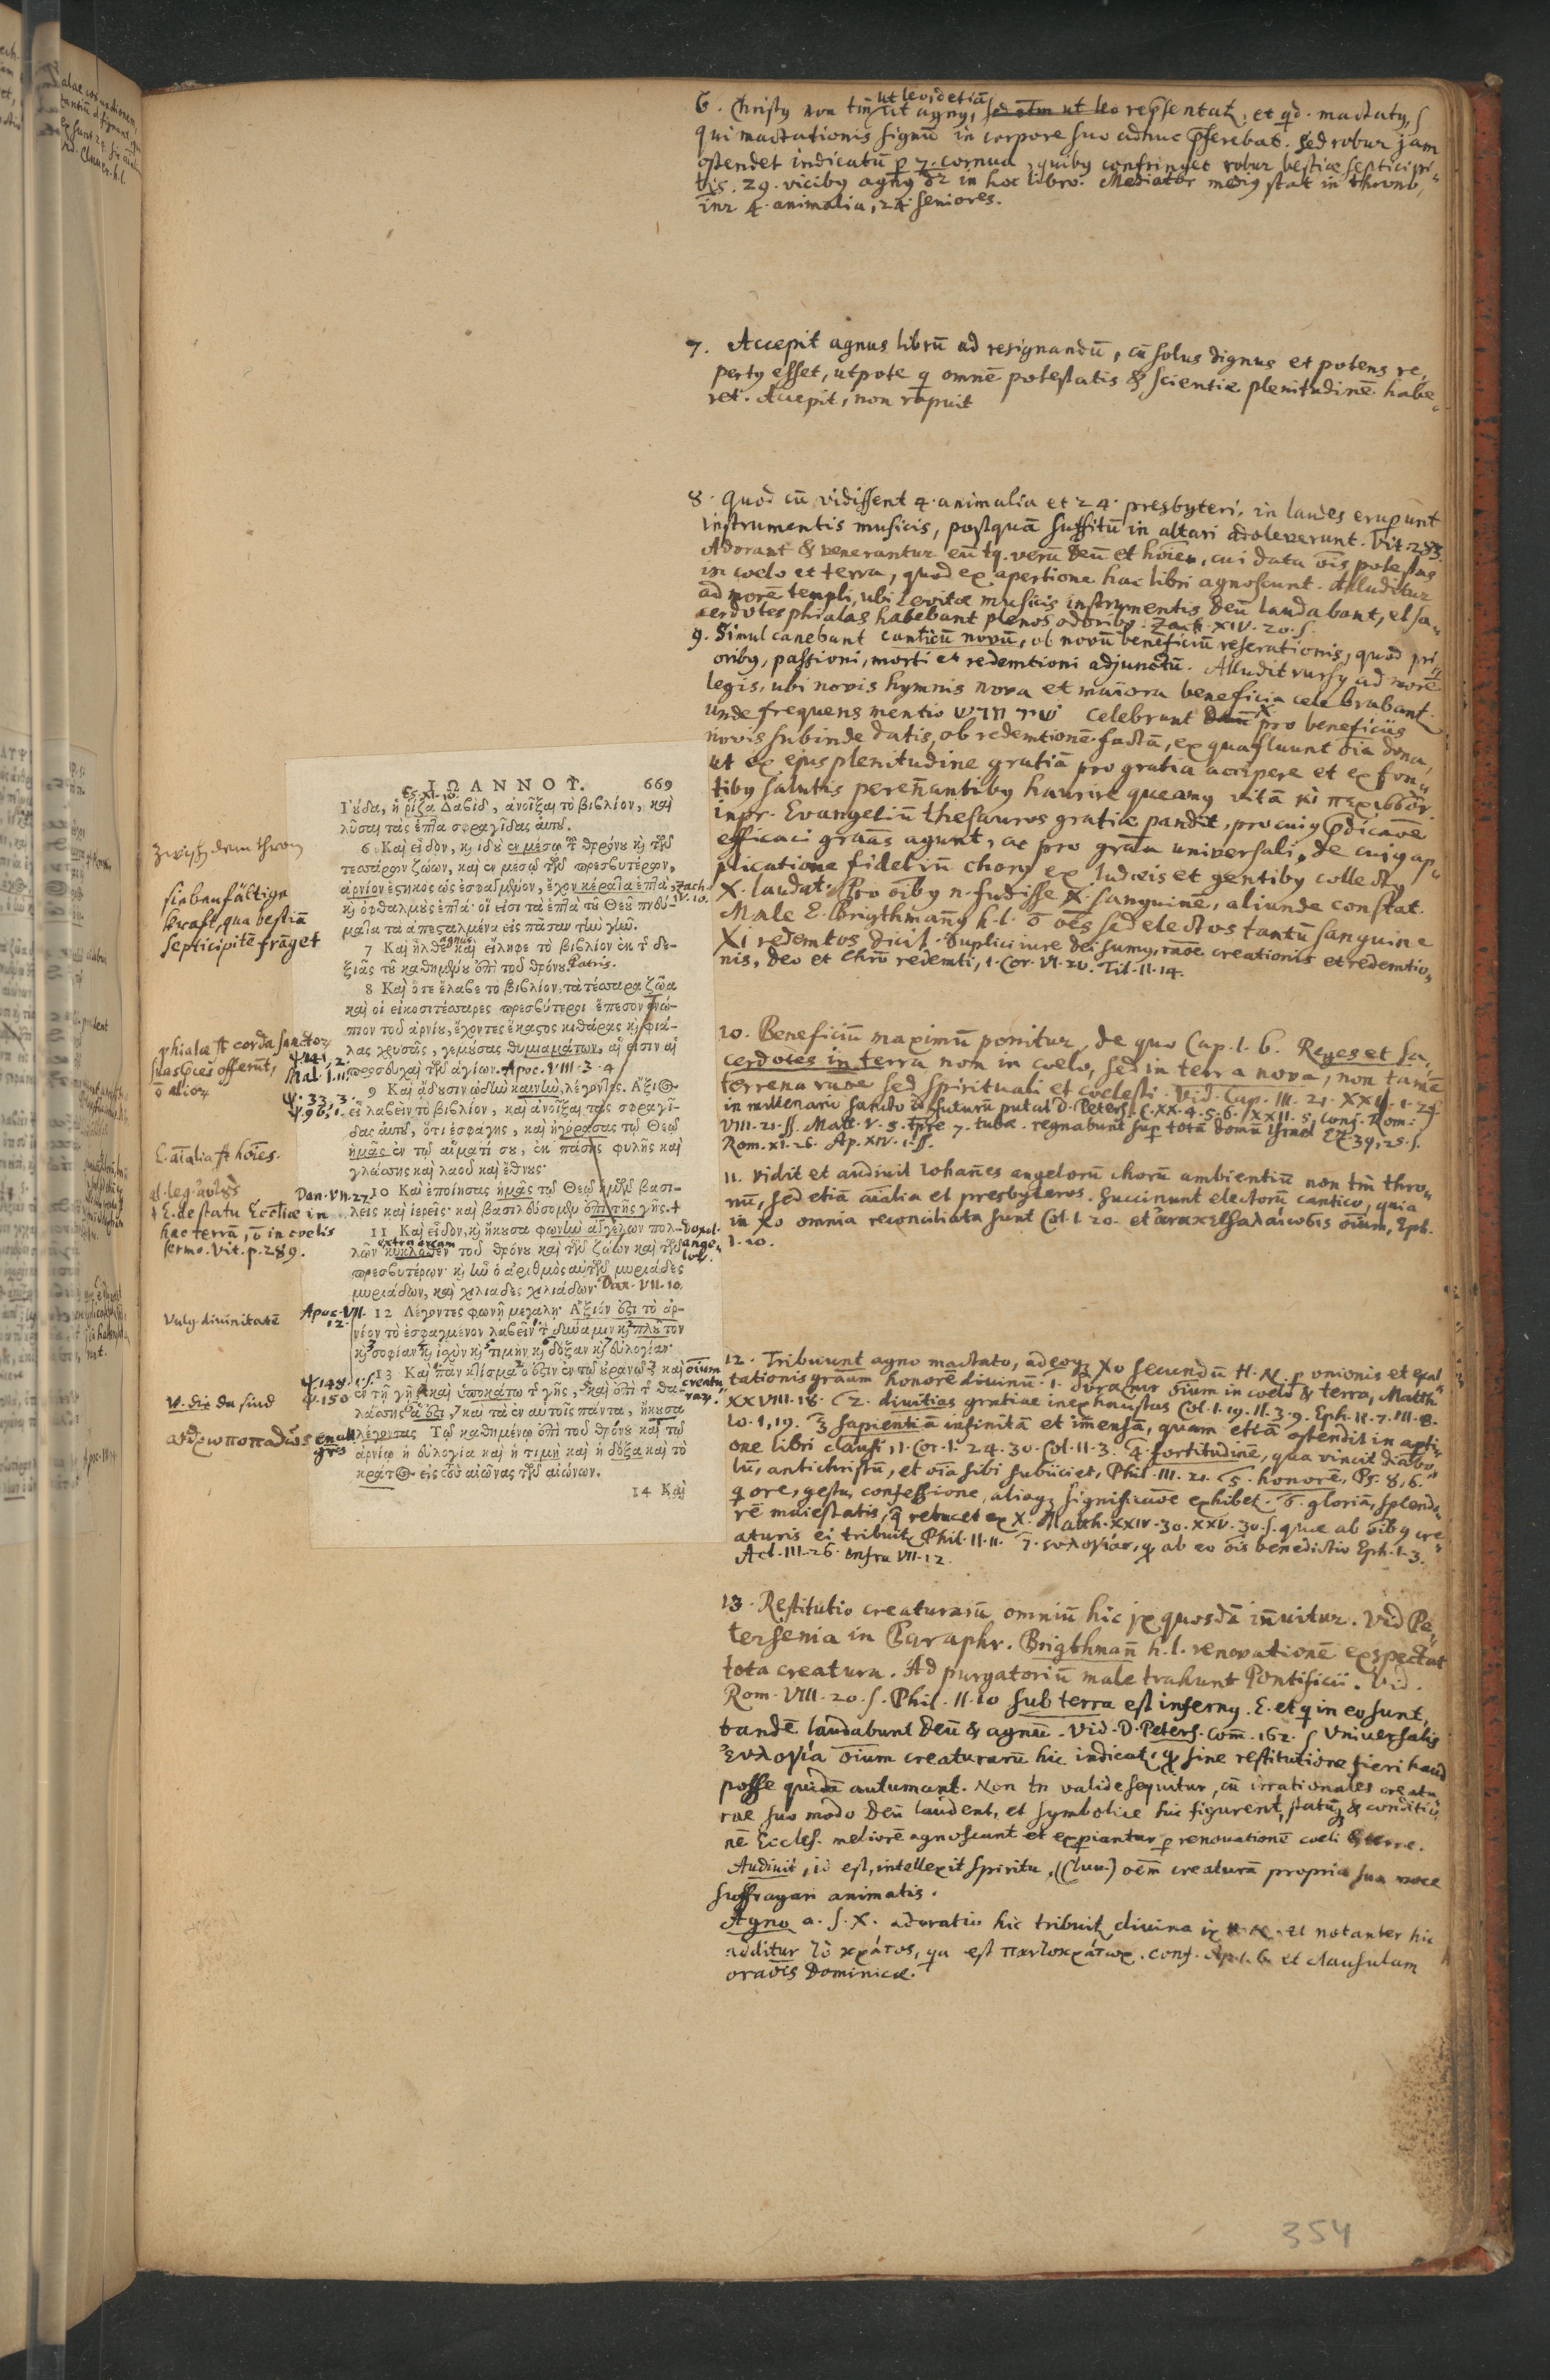 6. Christꝰ non tm̄ ut agnꝰ, sed etm ut leo repͬsentat, et qd. mactatꝰ,
ut leo idetiā
qui mactationis signū in corpore suo adhuc p̄ferebat. Sed robur jam
ostendet indicatū p 7. cornua, quibꝰ confringet robur bestiæ septicipi-
tis. 29. vicibꝰ agnꝰ dr̄ in hoc libro. Mediator mediꝰ stat in throno,
inr̄ 4. animalia, 24 seniores.
7. Accepit agnus librū ad resignandū, cū solus dignus et potens re-
pertꝰ esset, utpote q omnē potestatis & scientiæ plenitudinē habe-
ret. Accepit, non rapuit
8. Quod cū vidissent 4. animalia et 24. presbyteri, in laudes erupunt
instrumentis musicis, postquā suffitū in altari adoleverunt. Vit. 283.
Adorant & venerantur eū tq. verū Deū et hōiem, cui data oīs potestas
in coelo et terra, quod ex apertione hac libri agnoscunt. Alluditur
ad morē templi, ubi Levitæ musicis instrumentis Deū laudabant, et sa-
cerdotes phialas habebant plenos odoribꝰ. Zach. XIV. 20. s.
9. Simul canebant canticū novū, ob novū beneficiū reserationis, quod pri-
oribꝰ, passioni, morti et redemtioni adjunctū. Alludit rursꝰ ad morē
legis, ubi novis hymnis nova et maiora beneficia celebrabant
unde frequens mentio שיר חדש celebrant X pro beneficiis
novis subinde datis, ob redemtionē factā, ex qua fluunt oīa dona,
ut ex ejus plenitudine gratiā pro gratia accipere et ex fon-
tibꝰ salutis perēnantibꝰ haurire queamꝰ vitā
inpr. Evangeliū thesauros gratiæ pandit, pro cuiꝰ p̄dicaōe
efficaci grāas agunt, ac pro grāa universali, de cuiꝰ ap-
plicatione fideliū chorꝰ ex Judæis et gentibꝰ collectꝰ
X. laudat. Pro oībꝰ n. fudisse X. sanguinē, aliunde constat.
Male E. Brigthmanꝰ h.l. ō oēs sed electos tantū sanguine
Xi redemtos dicit. Duplici iure dei sumꝰ, rāoe creationis et redemtio-
nis, deo et Chr̄o redemti, 1. Cor. VI. 20. Tit. II. 14.
10. Beneficiū maximū ponitur, de quo Cap. I. 6. Reges et sa-
cerdotes in terra non in coelo, sed in terra nova, non tamē
terrena rūoe sed spirituali et coelesti. Vid. Cap. III. 21. XXI. 1. 24
in millenario sancto id futurū putat D. Peters. C. XX. 4. 5. 6. XXII. 5, conf. Rom.
VIII. 21. ss. Matt. V. 5. tp̄re 7. tubæ. regnabunt sup totā domū Israel Ez. 39, 25. s.
Rom. XI. 26. Ap. XIV. 1. ss.
11. Vidit et audivit Iohannes angelorū chorū ambientiū non tm̄ thro-
nū, sed etiā aīalia et presbyteros. Succinunt electorū cantico, quia
in Xo omnia reconciliata sunt Col. I. 20. et ἀνακεφαλαίωσις oīum, Eph.
I. 10.
12. Tribuunt agno mactato, adeoq; Xo secundū H. N. p unionis et exal-
tationis grāam honorē divinū. 1. δύναμιν oīum in coelo & terra, Matth.
XXVIII. 18. 2. divitias gratiæ inexhaustas Col. I. 19. II. 3. 9. Eph. II. 7. III. 8.
Io. 1, 19. 3 sapientiā infinitā et imensā, quam etiā ostendit in apti-
one libri clausi, 1. Cor. I. 24. 30. Col. II. 3. 4 fortitudinē, qua vincit diabo-
lū, antichristū, et oīa sibi subiiciet, Phil. III. 21. 5. honorē, Ps. 8, 6.
q ore, gestu, confessione, aliaq; significaōe exhibet. 6. gloriā, splendo-
rē maiestatis, q relucet ex X. Matth. XXIV. 30. XXV. 30. s. quæ ab oībꝰ cre-
aturis ei tribuit Phil. II. 11. 7. ευλογίαν, q ab eo oīs benedictio Eph. I. 3.
Act. III. 26. infra VII. 12.
13. Restitutio creaturarū omniū hic jx quosdā inuitur. Vid Pe-
tersenia in Paraphr. Brigthmanꝰ h.l. renovationē exspectat
tota creatura. Ad purgatoriū male trahunt Pontificii. Vid.
Rom. VIII. 20. s. Phil. II. 10 sub terra est infernꝰ. E. et q in eo sunt,
tandē laudabunt Deū & agnū. Vid. D. Peters. Com. 162. s Universalis
ευλογία oīum creaturarū hic indicat, q sine restitutione fieri haud
posse quidā autumant. Non tn valide sequitur, cū irrationales creatu-
rae suo modo Deū laudent, et symbolice hic figurent, statū & conditio-
nē Eccles. meliorē agnoscant et expiantur p renovationē coeli & terræ.
Audivit, id est, intellexit spiritu, (Cluv.) oēm creaturā propria sua voce
suffragari animatis.
Agno a. s. X. adoratio hic tribuit divina jx H. N. et notanter hic
additur τὸ κράτος, qa est παντοκράτωρ. conf. Ap. I. 6 et clausulam
oraōis Dominicæ.
ΙΩΑΝΝΟΥ. 669
Es. XI. 10.
Ἰούδα, ἡ ῥίζα Δαβίδ, ἀνοῖξαι τὸ βιβλίον, καὶ
λῦσαι τὰς ἑπτὰ σφραγῖδας αὐτοῦ.
6 Καὶ εἶδον, καὶ ἰδοὺ ἐν μέσῳ τοῦ θρόνου καὶ τῶν
τεσσάρων ζώων, καὶ ἐν μέσῳ τῶν πρεσβυτέρων,
ἀρνίον ἑστηκὸς ὡς ἐσφαγμένον, ἔχον κέρατα ἑπτὰ Zach.
καὶ ὀφθαλμοὺς ἑπτά· οἵ εἰσι τὰ ἑπτὰ τοῦ Θεοῦ πνεύ- IV. 10.
ματα τὰ ἀπεσταλμένα εἰς πᾶσαν τὴν γῆν.
agnus
7 Καὶ ἦλθε, καὶ εἴληφε τὸ βιβλίον ἐκ τῆς δε-
ξιᾶς τοῦ καθημένου ἐπὶ τοῦ θρόνου. Patris.
8 Καὶ ὅτε ἔλαβε τὸ βιβλίον, τὰ τέσσαρα ζῶα
καὶ οἱ εἰκοσιτέσσαρες πρεσβύτεροι ἔπεσον ἐνώ-
πιον τοῦ ἀρνίου, ἔχοντες ἕκαστος κιθάρας καὶ φιά-
λας χρυσᾶς, γεμούσας θυμιαμάτων, αἵ εἰσιν αἱ
προσευχαὶ τῶν ἁγίων. Apoc. VIII. 3. 4
9 Καὶ ᾄδουσιν ᾠδὴν καινήν, λέγοντες· Ἄξιος
εἶ λαβεῖν τὸ βιβλίον, καὶ ἀνοῖξαι τὰς σφραγῖ-
δας αὐτοῦ, ὅτι ἐσφάγης, καὶ ἠγόρασας τῷ Θεῷ
ἡμᾶς ἐν τῷ αἵματί σου, ἐκ πάσης φυλῆς καὶ
γλώσσης καὶ λαοῦ καὶ ἔθνους·
10 Καὶ ἐποίησας ἡμᾶς τῷ Θεῷ ἡμῶν βασι-
λεῖς καὶ ἱερεῖς· καὶ βασιλεύσομεν ἐπὶ τῆς γῆς. †
11 Καὶ εἶδον, καὶ ἤκουσα φωνὴν ἀγγέλων πολ-
extra orcam
λῶν κυκλόθεν τοῦ θρόνου καὶ τῶν ζώων καὶ τῶν
πρεσβυτέρων· καὶ ἦν ὁ ἀριθμὸς αὐτῶν μυριάδες
μυριάδων, καὶ χιλιάδες χιλιάδων· Dan. VII. 10.
12 Λέγοντες φωνῇ μεγάλῃ· Ἄξιόν ἐστι τὸ ἀρ-
νίον τὸ ἐσφαγμένον λαβεῖν τὴν δύναμιν καὶ πλοῦτον
καὶ σοφίαν καὶ ἰσχὺν καὶ τιμὴν καὶ δόξαν καὶ εὐλογίαν·
13 Καὶ πᾶν κτίσμα ὅ ἐστιν ἐν τῷ οὐρανῷ καὶ
ἐν τῇ γῇ καὶ ὑποκάτω τῆς γῆς, καὶ ἐπὶ τῆς θα-
λάσσης ἅ ἐστι, καὶ τὰ ἐν αὐτοῖς πάντα, ἤκουσα
λέγοντας· Τῷ καθημένῳ ἐπὶ τοῦ θρόνου καὶ τῷ
ἀρνίῳ ἡ εὐλογία καὶ ἡ τιμὴ καὶ ἡ δόξα καὶ τὸ
κράτος εἰς τοὺς αἰῶνας τῶν αἰώνων.
14 Καὶ
oīum
creatu-
raꝝ.
zwisch dem thron
siebenfältige
krafft, qua bestiā
septicipitē frāget
phialæ st corda sanctoꝝ
suas p̄ces offerūt,
ō alioꝝ
Ψ. 141, 2.
Mal. I. 11.
Ψ. 33, 3.
Ψ. 96, 1.
E. aīalia st hōies.
al. leg. αὐτοὺς
† E. de statu Eccl̄iæ in
hac terrā, ō in coelis
sermo. Vit. p. 289.
Dan. VII. 27.
Vulg. divinitatē
Apoc. VII.
12.
Ψ. 148. 1. s.
Ψ. 150
v. die da sind
ανθρωποπαθῶς
354